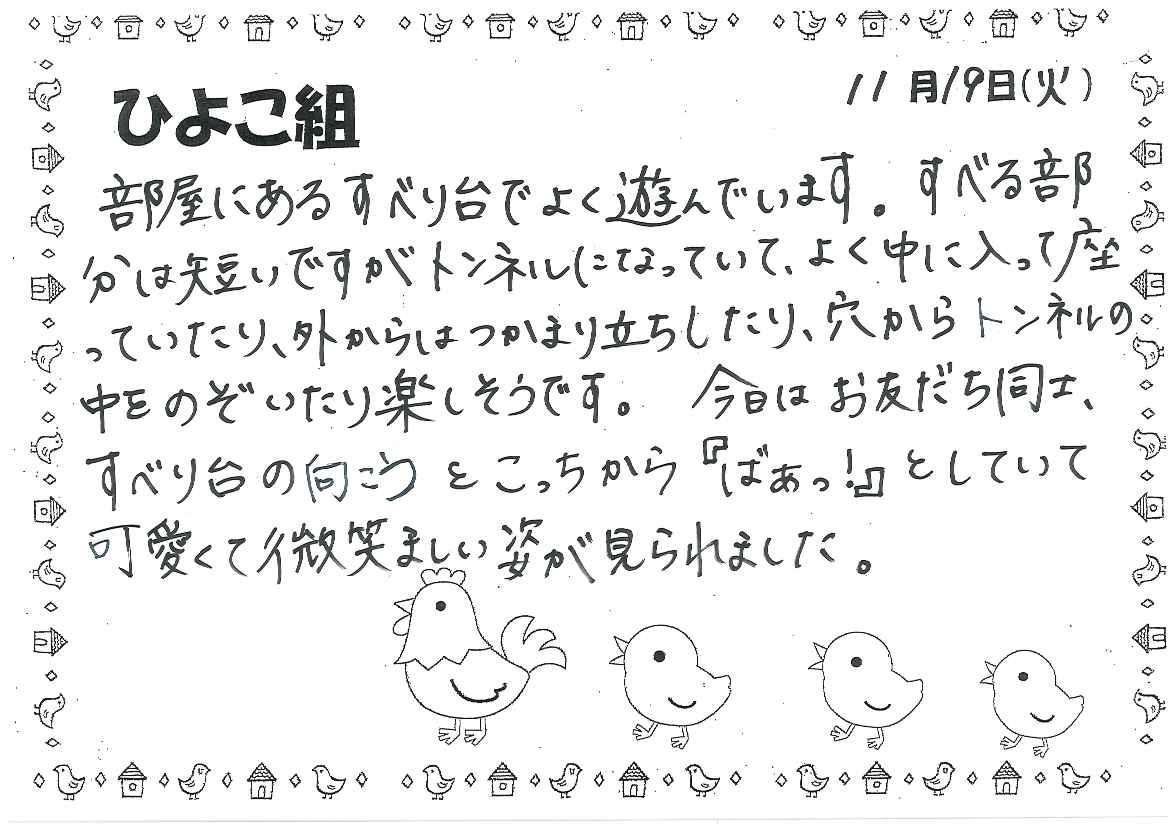 ひよこ組
11月19日(火)
部屋にあるすべり台でよく遊んでいます。すべる部
分は短いですがトンネルになっていて、よく中に入って座
っていたり、外からはつかまり立ちしたり、穴からトンネルの
中をのぞいたり楽しそうです。 今日はお友だち同士、
すべり台の向こうとこっちから『ばぁっ!』としていて
可愛くて微笑ましい姿が見られました。